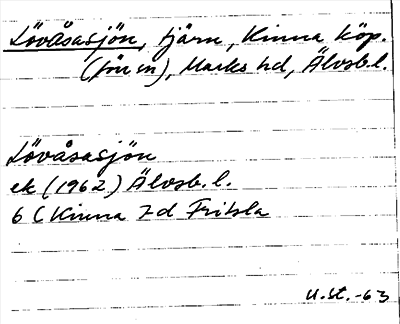 Lövåsasjön, tjärn, Kinna köp.
(fön sn), Marks hd, Älvsb.l.
Lövåsasjön
ek (1962) Älvsb.l.
6 C Kinna 7d Fritsla
U.St.-63